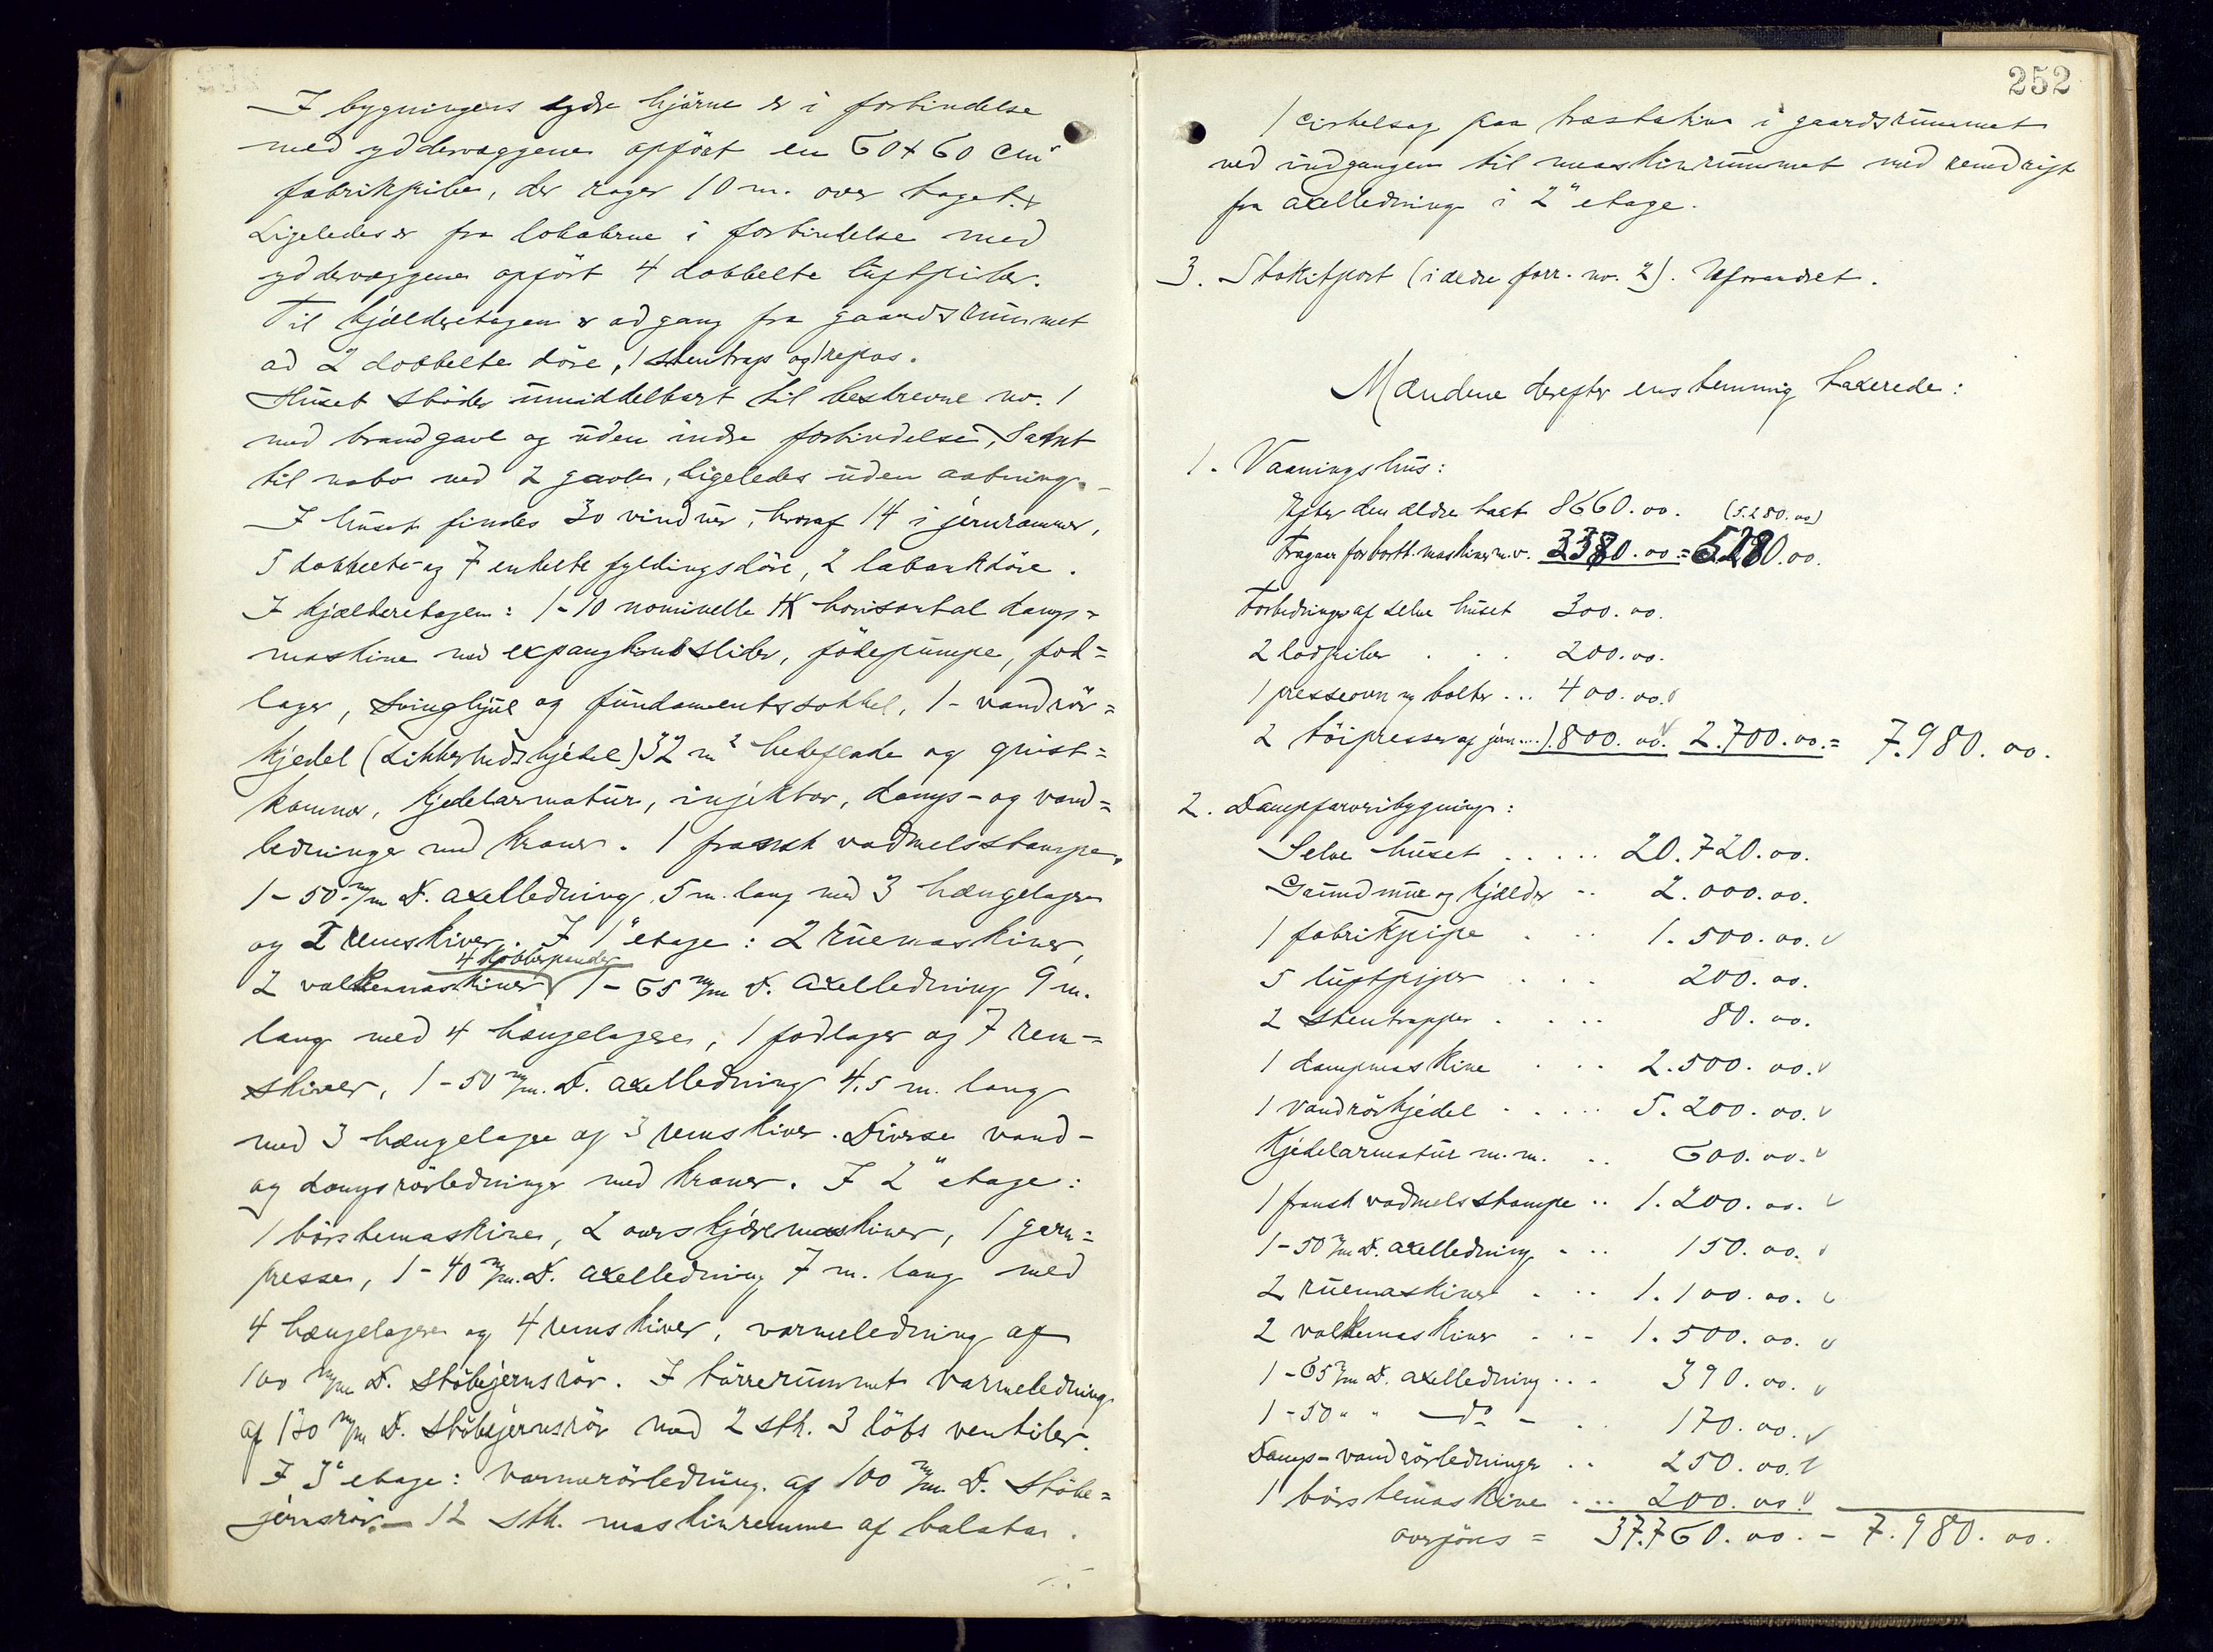 I bygningens sydre hjörne er i forbindelse
med yddervæggene opfört en 60 x 60 cm"
fabrikpibe, der rager 10 m. over taget.
Ligeledes er fra lokalerne i forbindelse med
yddervæggene opfört 4 dobbelte luftpiber.
Til kjælderetagen er adgang fra gaardsrummet
ad 2 dobbelte döre, 1 stentrap og 1 repos.
Huset stöder umiddelbart til bestrevne no. 1
med brandgavl og uden indre forbindelse, samt
til nabo med 2 gavle, ligeledes uden aabning.
I huset findes 30 vinduer, hvoraf 14 i jernrammer,
5 dobbelte- og 7 enkelte fyldingsdöre, 2 labankdöre.
I kjælderetagen: 1 - 10 nominelle HK horisontal damp=
maskine med expangtionsslider, födepumpe, fod=
lager, svinghjul og fundamentssokkel, 1 - vandrör=
kjedel (sikkerhedskjedel) 32 m² hedeflade og gnist=
kammer, kjedelarmatur, injektor, damp- og vand=
ledninger med kraner. 1 fransk vadmelsstampe,
1 - 50 m/m D. axelledning 5 m. lang med 3 hængelagere
og 2 remskiver. I 1" etage: 2 ruemaskiner,
4 kobberpander
2 valkemaskiner, 1 - 65 m/m D. axelledning 9 m.
lang med 4 hængelagere, 1 fodlager og 7 rem=
skiver, 1 - 50 m/m. D. axelledning 4,5 m. lang
med 3 hængelagre og 3 remskiver. Diverse vand-
og damprörledninger med kraner. I 2" etage:
1 börstemaskine, 2 overskjæremaskiner, 1 garn=
presse, 1 - 40 m/m. D. axelledning 7 m. lang med
4 hængelagere og 4 remskiver, varmeledning af
100 m/m D. stöbejernsrör. I törrerummet varmeledning
af 130 m/m D. stöbejernsrör med 2 stk. 3 löbs ventiler.
I 3" etage: varmerörledning af 100 m/m D. stöbe=
jernsrör. - 12 stk. maskinremme af balata.
252
1 cirkelsag paa træstativ i gaardsrummet
ved indgangen til maskinrummet med remdrift
fra axelledning i 2" etage.
3. Stakitport (i ældre forr. no. 2). Uforandret.
Mændene derefter enstemmig taxerede:
1. Vaaningshus:
Efter den ældre taxt 8660.00. (5.280.00)
Fragaar for bortt. maskiner m.v. 3380.00 = 5280.00.
Forbedringer af selve huset 300.00.
2 lodpiber . . . 200.00.
1 presseovn og bolter ... 400.00.
2 töipresser af jern ... 1.800.00. 2.700.00. = 7.980.00.
2. Dampfarveribygning:
Selve huset ..... 20.720.00.
Grundmur og kjælder .. 2.000.00.
1 fabrikpipe . .. 1.500.00.
5 luftpiper . . . 200.00.
2 stentrapper . ... 80.00.
1 dampmaskine . .. 2.500.00.
1 vandrörkjedel . ... 5.200.00.
Kjedelarmatur m.m. .. 600.00.
1 fransk vadmelsstampe .. 1.200.00.
1 - 50 m/m D. axelledning . .. 150.00.
2 ruemaskiner . .. 1.100.00.
2 valkemaskiner . .. 1.500.00.
1 - 65 m/m D. axelledning ... 390.00.
1 - 50 " " - do - . 170.00.
Damp- vandrörledninger .. 250.00.
1 börstemaskine ... 200.00.
overföres = 37.760.00. - 7.980.00.